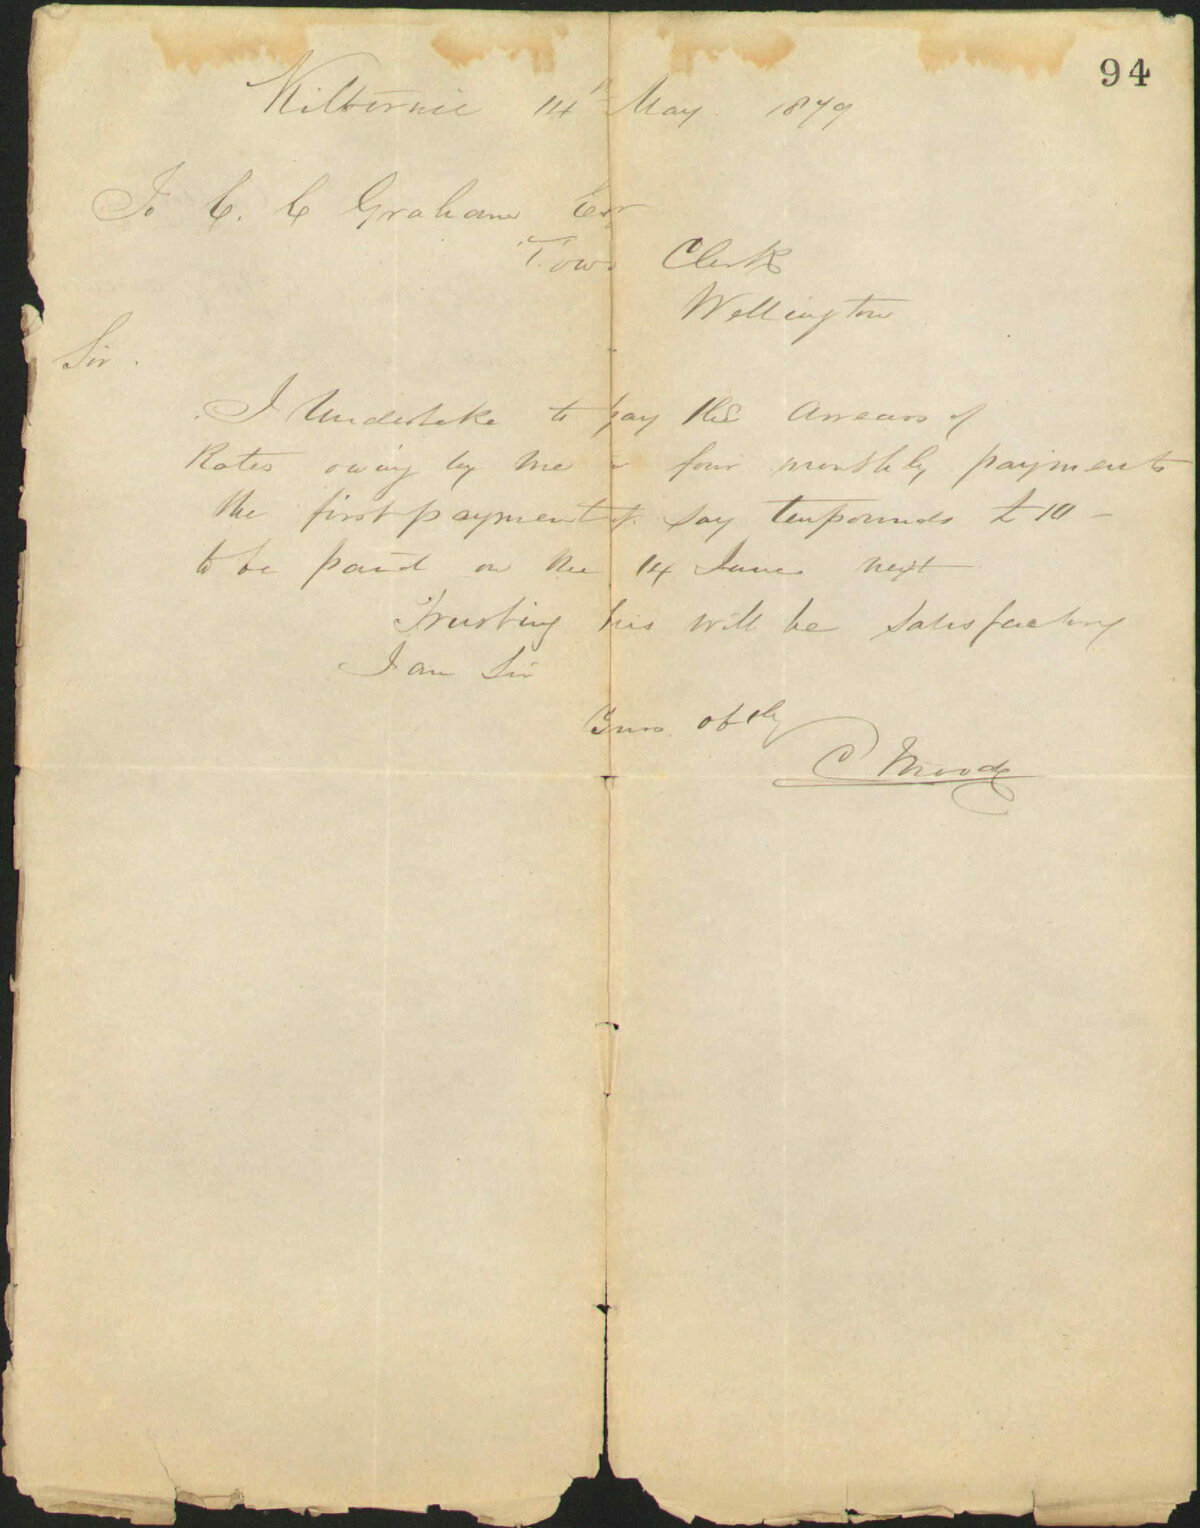 94
Kilbirnie 14th May 1879
To C. C Graham Esqr
Town Clerk
Wellington
Sir.
I Undertake to pay the arrears of
Rates owing by me in four monthly payments
the first payment of say ten pounds £10 -
to be paid on the 14 June next
Trusting this will be satisfactory
I am Sir
Yours obtly
C Moody